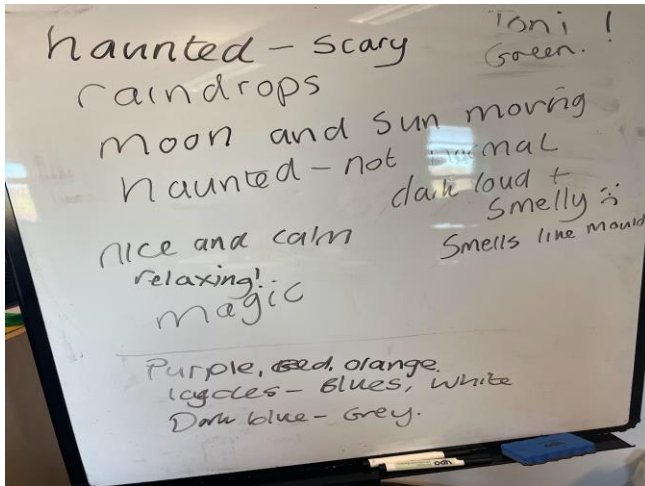 haunted - scary
Toni !
Green.
raindrops
moon and sun moving
haunted - not normal
dark loud +
smelly :(
smells like mould
nice and calm
relaxing!
magic
Purple, Red, orange.
Icycles - Blues, White
Dark blue - Grey.